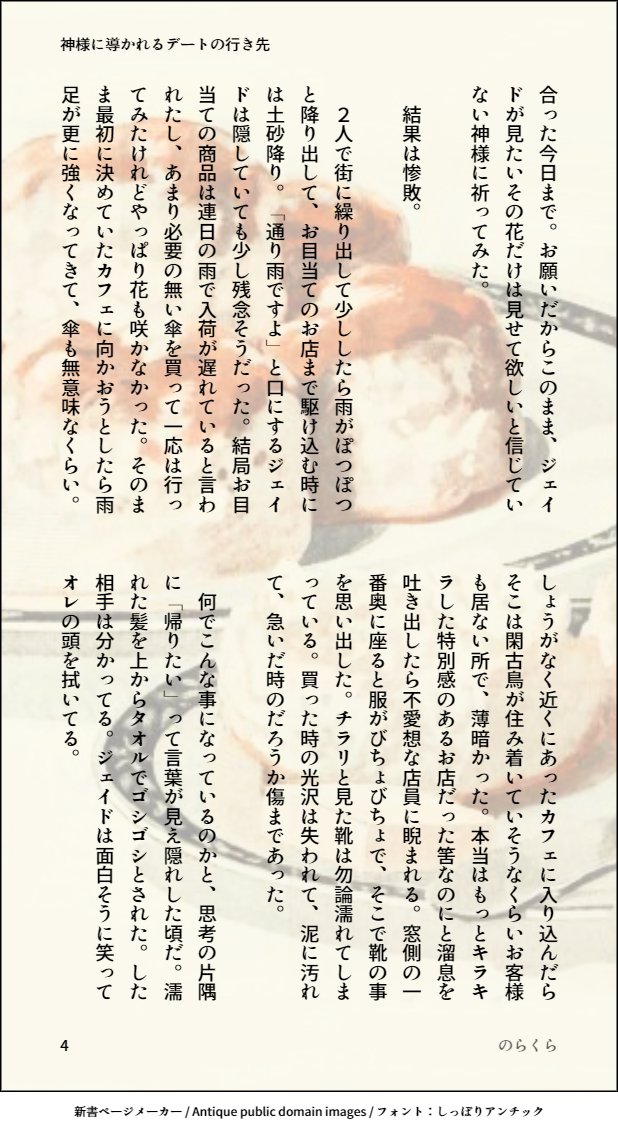 神様に導かれるデートの行き先
合った今日まで。お願いだからこのまま、ジェイ
ドが見たいその花だけは見せて欲しいと信じてい
ない神様に祈ってみた。
結果は惨敗。
２人で街に繰り出して少ししたら雨がぽつぽつ
と降り出して、お目当てのお店まで駆け込む時に
は土砂降り。「通り雨ですよ」と口にするジェイ
ドは隠していても少し残念そうだった。結局お目
当ての商品は連日の雨で入荷が遅れていると言わ
れたし、あまり必要の無い傘を買って一応は行っ
てみたけれどやっぱり花も咲かなかった。そのま
ま最初に決めていたカフェに向かおうとしたら雨
足が更に強くなってきて、傘も無意味なくらい。
しょうがなく近くにあったカフェに入り込んだら
そこは閑古鳥が住み着いていそうなくらいお客様
も居ない所で、薄暗かった。本当はもっとキラキ
ラした特別感のあるお店だった筈なのにと溜息を
吐き出したら不愛想な店員に睨まれる。窓側の一
番奥に座ると服がびちょびちょで、そこで靴の事
を思い出した。チラリと見た靴は勿論濡れてしま
っている。買った時の光沢は失われて、泥に汚れ
て、急いだ時のだろうか傷まであった。
何でこんな事になっているのかと、思考の片隅
に「帰りたい」って言葉が見え隠れした頃だ。濡
れた髪を上からタオルでゴシゴシとされた。した
相手は分かってる。ジェイドは面白そうに笑って
オレの頭を拭いてる。
4
のらくら
新書ページメーカー / Antique public domain images / フォント：しっぽりアンチック